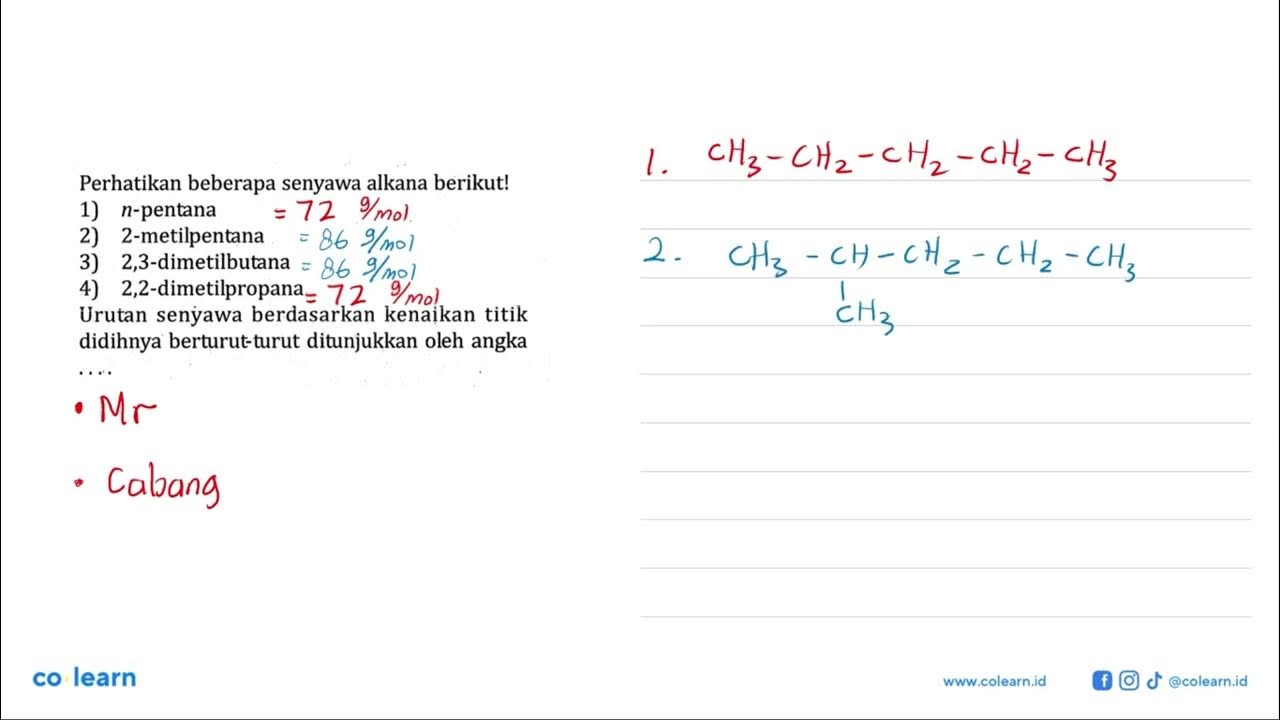 Perhatikan beberapa senyawa alkana berikut!
1) n-pentana = 72 g/mol
2) 2-metilpentana = 86 g/mol
3) 2,3-dimetilbutana = 86 g/mol
4) 2,2-dimetilpropana = 72 g/mol
Urutan senyawa berdasarkan kenaikan titik
didihnya berturut-turut ditunjukkan oleh angka
....
• Mr
• Cabang
1. CH3 - CH2 - CH2 - CH2 - CH3
2. CH3 - CH - CH2 - CH2 - CH3
CH3
co learn
www.colearn.id
@colearn.id